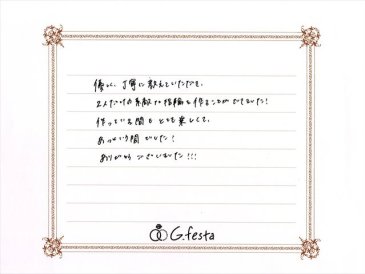 優しく、丁寧に教えていただき、
2人だけの素敵な指輪を作ることができました!
作っている間もとても楽しくて、
あっという間でした!
ありがとうございました!!!
G.festa